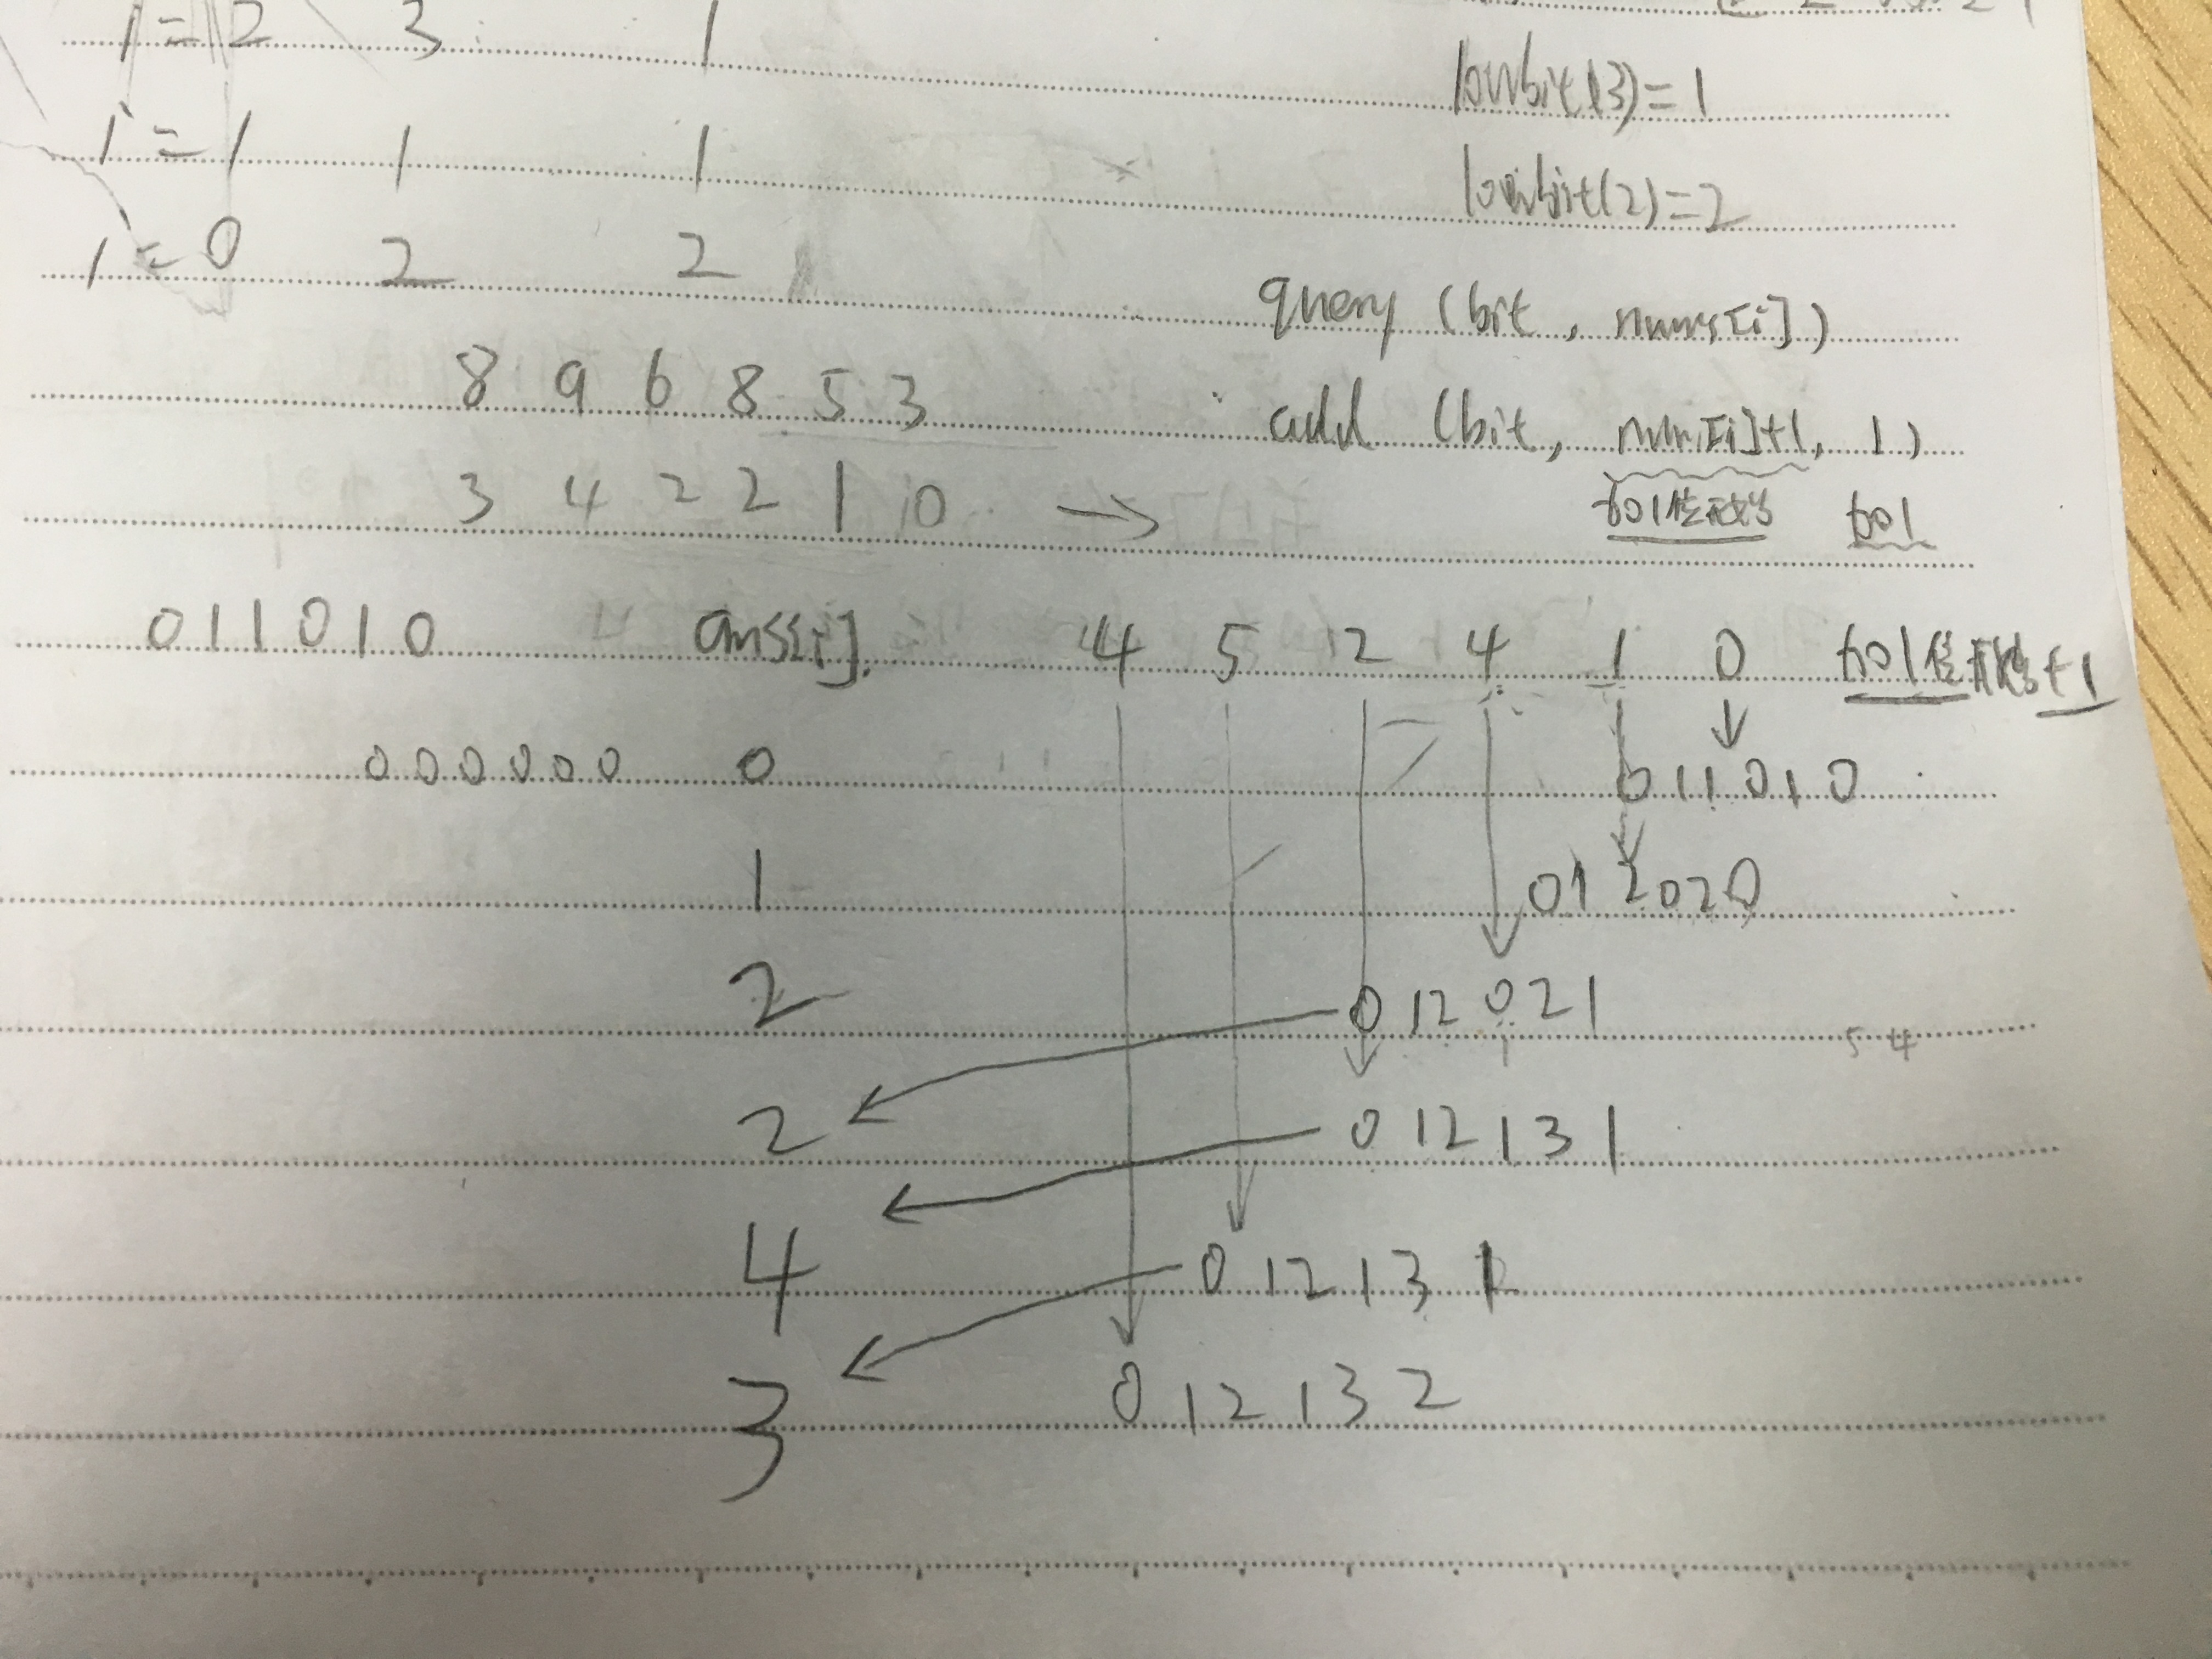 i=2 3 1
lowbit(3)=1
i=1 1 1
lowbit(2)=2
i=0 2 2
query (bit, nums[i])
8 9 6 8 5 3
add (bit, nums[i]+1, 1)
3 4 2 2 1 0 →
加1
011010 ans[i]. 4 5 2 4 1 0
000000 0 011010
1 012020
2 012021
5 4
2 012131
4 012131
3 012132